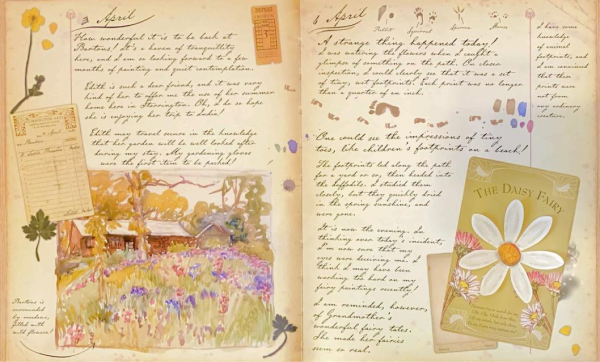 3 April
How wonderful it is to be back at
Provins! It's a haven of tranquillity
here, and I'm so looking forward to a few
months of painting and quiet contemplation.
Edith is such a dear friend, and it was very
kind of her to offer me the use of her summer
home here in Storrington. Oh, I do so hope
she is enjoying her trip to India!
Edith may travel secure in the knowledge
that her garden will be well looked after
during my stay. My gardening gloves
were the first item to be packed!
is surrounded
by meadows,
filled with
wild flowers!
4 April
Rabbit
Squirrel
Sparrow
Mouse
A strange thing happened today!
I was watering the flowers when I caught a
glimpse of something on the path. On closer
inspection, I could clearly see that it was a set
of tiny, wet footprints! Each print was no longer
than a quarter of an inch.
I have some
knowledge
of animal
footprints, and
I am convinced
that these
prints
were not
from
any ordinary
creature.
One could see the impressions of tiny
toes, like children's footprints on a beach!
The footprints led along the path
for a yard or so, then headed into
the daffodils. I studied them
closely, but they quickly dried
in the spring sunshine, and
were gone.
It is now the evening. In
thinking over today's incident,
I'm now sure that my
eyes were deceiving me. I
think I may have been
working too hard on my
fairy paintings recently!
I am reminded, however,
of Grandmother's
wonderful fairy tales.
She made her fairies
seem so real.
THE DAISY FAIRY